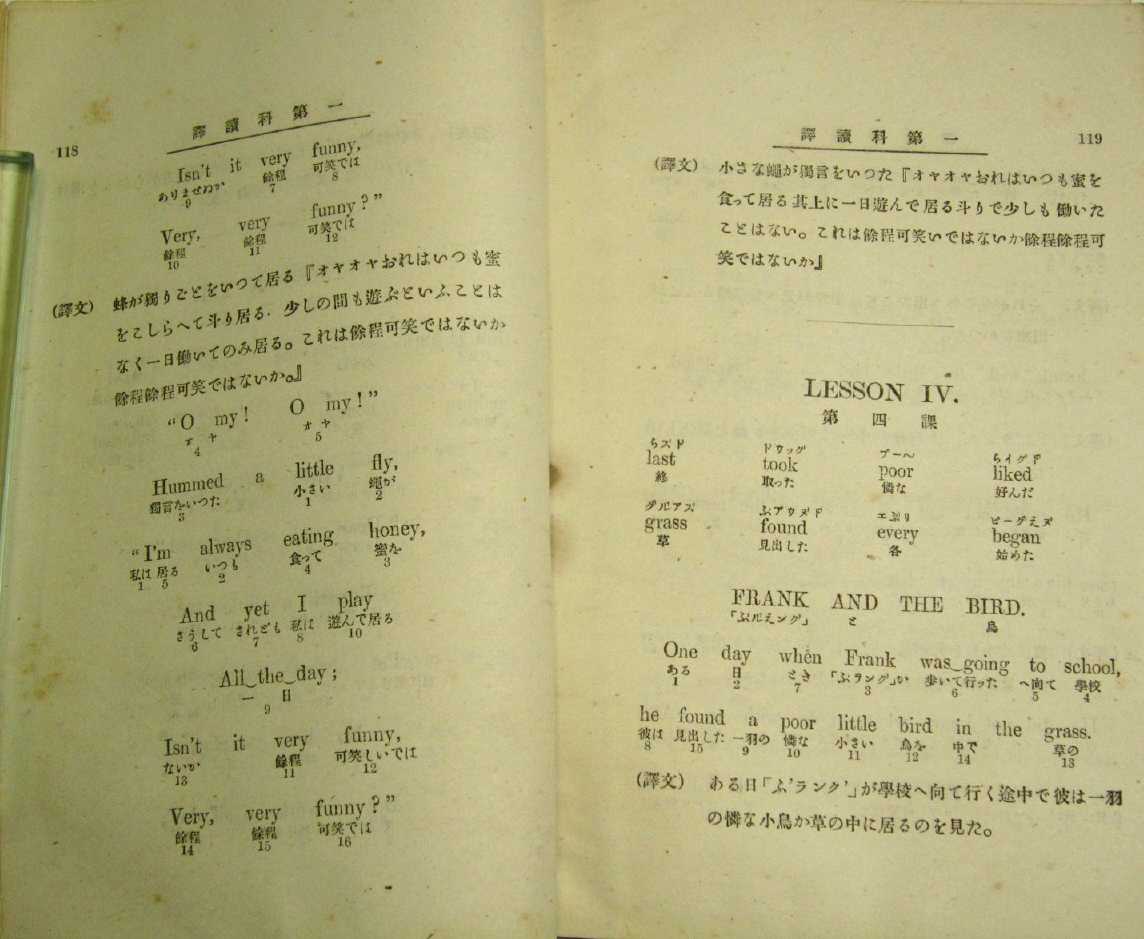 118
譯讀科第一
Isn't it very funny,
ありませぬか 餘程 可笑では
9 7 8
Very, very funny?”
餘程 餘程 可笑では
10 11 12
(譯文) 蜂が獨りごとをいつて居る『オヤオヤおれはいつも蜜
をこしらへて斗り居る．少しの間も遊ぶといふことは
なく一日働いてのみ居る。これは餘程可笑ではないか
餘程餘程可笑ではないか。』
“O my! O my!”
オヤ オヤ
4 5
Hummed a little fly,
獨言をいつた 小さい 蠅が
3 1 2
“I'm always eating honey,
私は 居る いつも 食って 蜜を
1 5 2 4 3
And yet I play
さうして されども 私は 遊んで居る
6 7 8 10
All‿the‿day;
一 日
9
Isn't it very funny,
ないか 餘程 可笑しいでは
13 11 12
Very, very funny?”
餘程 餘程 可笑では
14 15 16
譯讀科第一
119
(譯文) 小さな蠅が獨言をいつた『オヤオヤおれはいつも蜜を
食って居る其上に一日遊んで居る斗りで少しも働いた
ことはない。これは餘程可笑いではないか餘程餘程可
笑ではないか』
LESSON IV.
第四課
らズド ドウッグ プー〜 らイグド
last took poor liked
終 取った 憐な 好んだ
グルアズ ぶアウヌド エぶリ ビーゲえヌ
grass found every began
草 見出した 各 始めた
FRANK AND THE BIRD.
「ぶルえング」 と 鳥
One day when Frank was‿going to school,
ある 日 とき 「ぶランク」が 歩いて行った へ向て 學校
1 2 7 3 6 5 4
he found a poor little bird in the grass.
彼は 見出した 一羽の 憐な 小さい 鳥を 中で 草の
8 15 9 10 11 12 14 13
(譯文) ある日「ぶ'ランク'」が學校へ向て行く途中で彼は一羽
の憐な小鳥か草の中に居るのを見た。